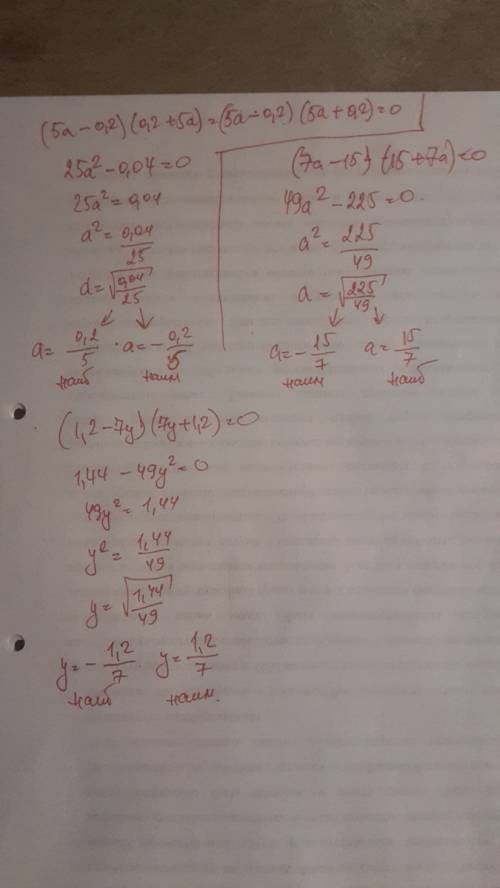 (5a - 0,2) (0,2 + 5a) = (5a - 0,2) (5a + 0,2) = 0
25a² - 0,04 = 0
25a² = 0,04
a² = 0,04/25
a = √(0,04/25)
a = 0,2/5 · a = - 0,2/5
наиб наим
(7a - 15) (15 + 7a) = 0
49a² - 225 = 0.
a² = 225/49
a = √(225/49)
a = - 15/7 a = 15/7
наим наиб
(1,2 - 7y) (7y + 1,2) = 0
1,44 - 49y² = 0
49y² = 1,44
y² = 1,44/49
y = √(1,44/49)
y = - 1,2/7 y = 1,2/7
наиб наим.